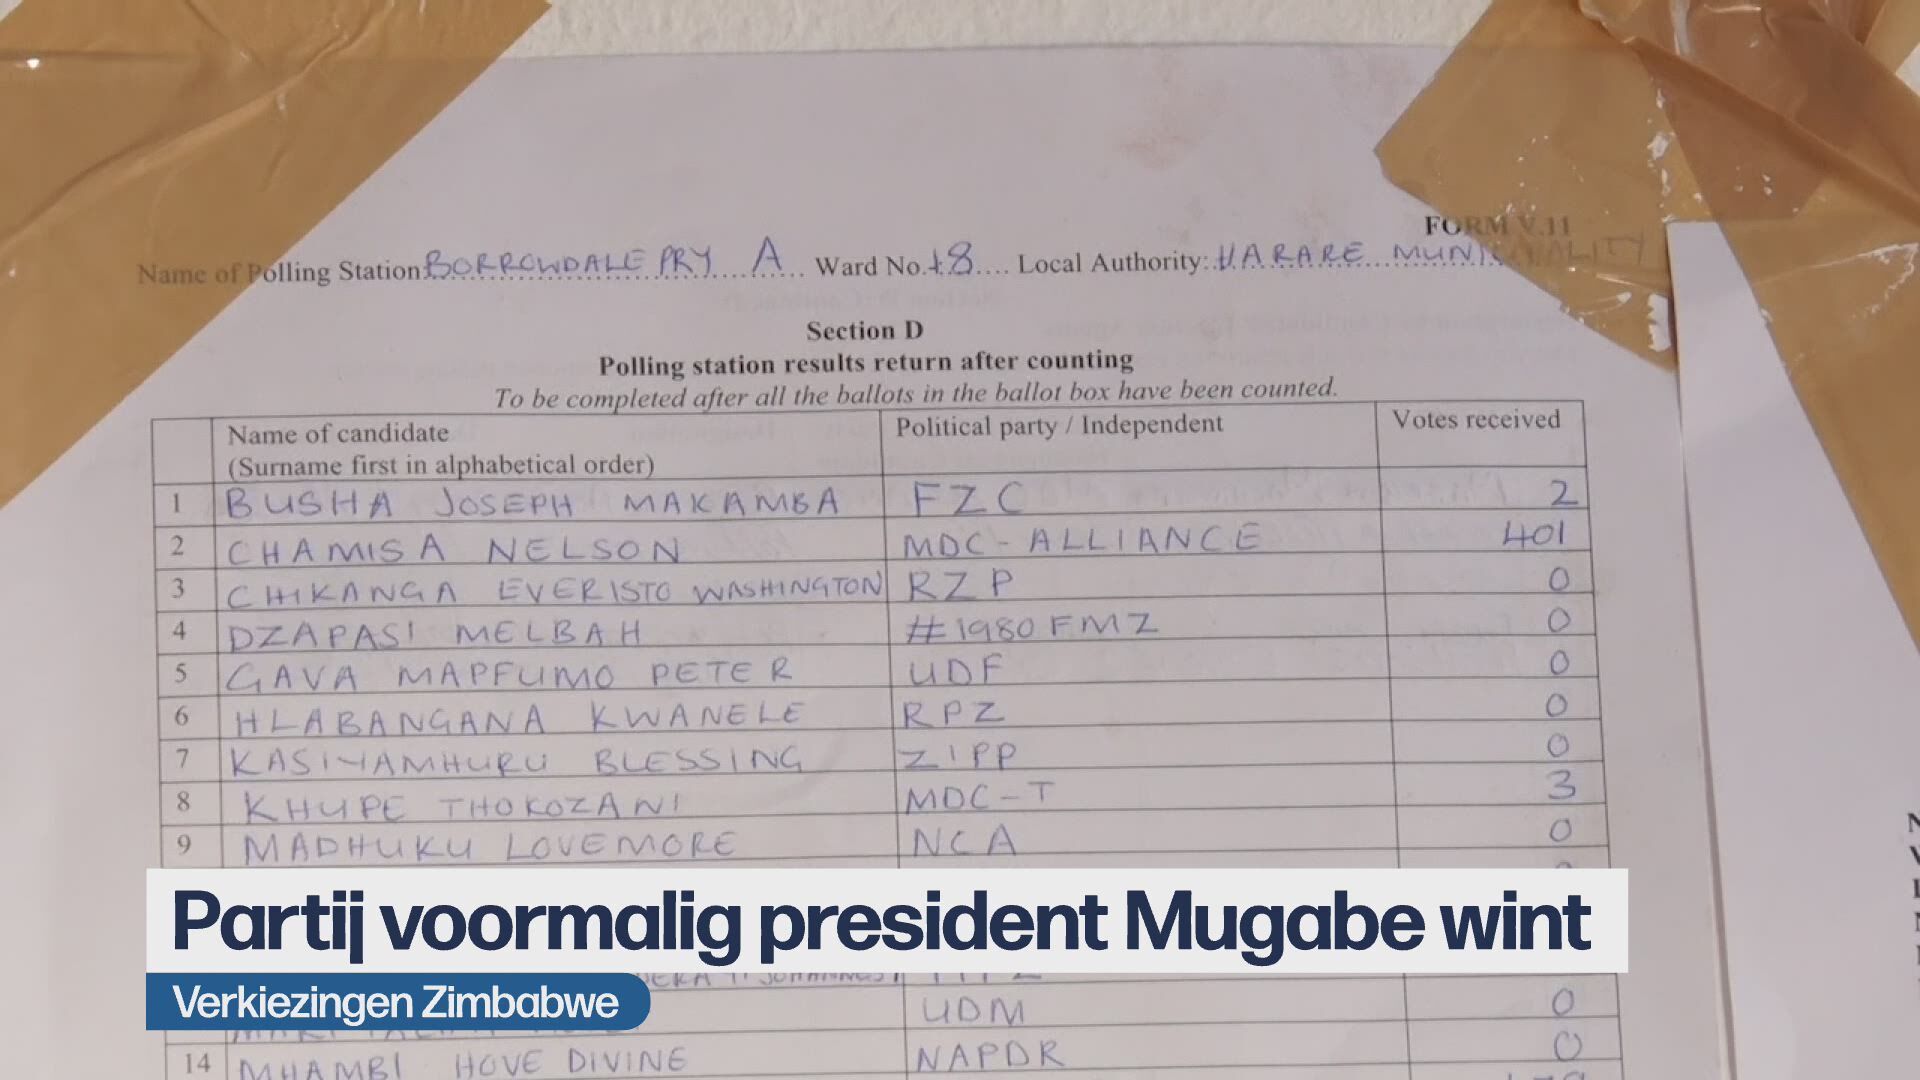 FORM V.11
Name of Polling Station: BORROWDALE PRY A Ward No. 18 Local Authority: HARARE MUNICIPALITY
Section D
Polling station results return after counting
To be completed after all the ballots in the ballot box have been counted.
Name of candidate (Surname first in alphabetical order) Political party / Independent Votes received
1 BUSHA JOSEPH MAKAMBA FZC 2
2 CHAMISA NELSON MDC-ALLIANCE 401
3 CHIKANGA EVERISTO WASHINGTON RZP 0
4 DZAPASI MELBAH #1980 FMZ 0
5 GAVA MAPFUMO PETER UDF 0
6 HLABANGANA KWANELE RPZ 0
7 KASIYAMHURU BLESSING ZIPP 0
8 KHUPE THOKOZANI MDC-T 3
9 MADHUKU LOVEMORE NCA 0
Partij voormalig president Mugabe wint
Verkiezingen Zimbabwe
UDM 0
14 MHAMBI HOVE DIVINE NAPDR 0